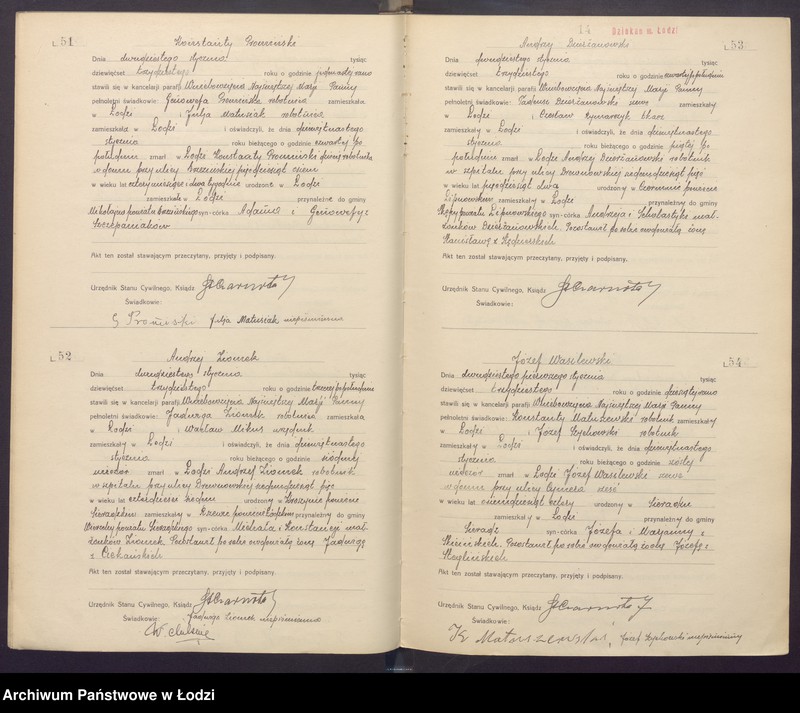 L. 51
Konstanty
Dnia dwudziestego stycznia tysiąc
dziewięćset trzydziestego roku o godzinie jedenastej rano
stawili się w kancelarji parafji Wniebowzięcia Najświętszej Marji Panny
pełnoletni świadkowie: Genowefa robotnica zamieszkała
w Łodzi i Julja Matusiak robotnica
zamieszkałe w Łodzi i oświadczyli, że dnia dziewiętnastego
stycznia roku bieżącego o godzinie czwartej po
południu zmarł w Łodzi Konstanty syn robotnika
w domu przy ulicy Brzezińskiej pięćdziesiąt osiem
w wieku lat cztery miesiące i dwa tygodnie urodzony w Łodzi
zamieszkały w Łodzi przynależny do gminy
Mikołajew powiatu Brzezińskiego syn-córka Adama i Genowefy z
Szczepaniaków
Akt ten został stawającym przeczytany, przyjęty i podpisany.
Urzędnik Stanu Cywilnego, Ksiądz
Świadkowie:
Julja Matusiak niepiśmienna
L. 52
Andrzej Zionek
Dnia dwudziestego stycznia tysiąc
dziewięćset trzydziestego roku o godzinie trzeciej po południu
stawili się w kancelarji parafji Wniebowzięcia Najświętszej Marji Panny
pełnoletni świadkowie: Jadwiga Zionek robotnica zamieszkała
w Łodzi i Wacław Mikus urzędnik
zamieszkały w Łodzi i oświadczyli, że dnia dziewiętnastego
stycznia roku bieżącego o godzinie siódmej
wieczór zmarł w Łodzi Andrzej Zionek robotnik
w szpitalu przy ulicy Drewnowskiej siedemdziesiąt pięć
w wieku lat czterdzieści siedem urodzony w powiecie
Sieradzkim zamieszkały w powiecie przynależny do gminy
powiatu Sieradzkiego syn-córka Michała i Konstancji mał-
żonków Zionek. Pozostawił po sobie owdowiałą żonę Jadwigę
z
Akt ten został stawającym przeczytany, przyjęty i podpisany.
Urzędnik Stanu Cywilnego, Ksiądz
Świadkowie: Jadwiga Zionek niepiśmienna
14 Dziekan m. Łodzi
L. 53
Andrzej Dzierżanowski
Dnia dwudziestego stycznia tysiąc
dziewięćset trzydziestego roku o godzinie czwartej po południu
stawili się w kancelarji parafji Wniebowzięcia Najświętszej Marji Panny
pełnoletni świadkowie: Tadeusz Dzierżanowski zamieszkały
w Łodzi i Czesław tkacz
zamieszkały w Łodzi i oświadczyli, że dnia dziewiętnastego
stycznia roku bieżącego o godzinie piątej po
południu zmarł w Łodzi Andrzej Dzierżanowski robotnik
w szpitalu przy ulicy Drewnowskiej siedemdziesiąt pięć
w wieku lat pięćdziesiąt dwa urodzony w powiecie
Lipnowskim zamieszkały w Łodzi przynależny do gminy
powiatu Lipnowskiego syn-córka Andrzeja i Scholastyki mał-
żonków Dzierżanowskich. Pozostawił po sobie owdowiałą żonę
Stanisławę z
Akt ten został stawającym przeczytany, przyjęty i podpisany.
Urzędnik Stanu Cywilnego, Ksiądz
Świadkowie:
L. 54
Józef Wasilewski
Dnia dwudziestego pierwszego stycznia tysiąc
dziewięćset trzydziestego roku o godzinie dziesiątej rano
stawili się w kancelarji parafji Wniebowzięcia Najświętszej Marji Panny
pełnoletni świadkowie: Konstanty Matuszewski robotnik zamieszkały
w Łodzi i Józef robotnik
zamieszkały w Łodzi i oświadczyli, że dnia dziewiętnastego
stycznia roku bieżącego o godzinie szóstej
wieczór zmarł w Łodzi Józef Wasilewski
w domu przy ulicy sześć
w wieku lat osiemdziesiąt cztery urodzony w Sieradzu
zamieszkały w Łodzi przynależny do gminy
Sieradz syn-córka Józefa i Marjanny z
Pozostawił po sobie owdowiałą żonę Józefę z
Akt ten został stawającym przeczytany, przyjęty i podpisany.
Urzędnik Stanu Cywilnego, Ksiądz
Świadkowie:
K Matuszewski, Józef niepiśmienny
Archiwum Państwowe w Łodzi